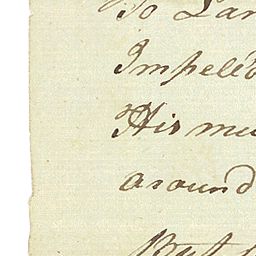 To Lan
Impele'd
His mu
around
But